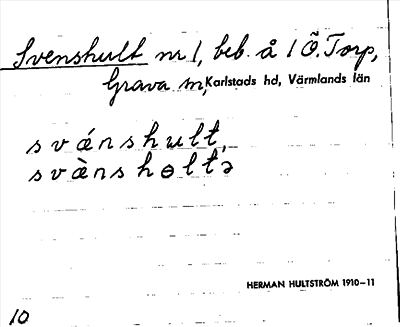 Svenshult nr 1, beb. å 1 Ö. Torp,
Grava sn, Karlstads hd, Värmlands län
svánshult,
svànshɵltə
HERMAN HULTSTRÖM 1910–11
10